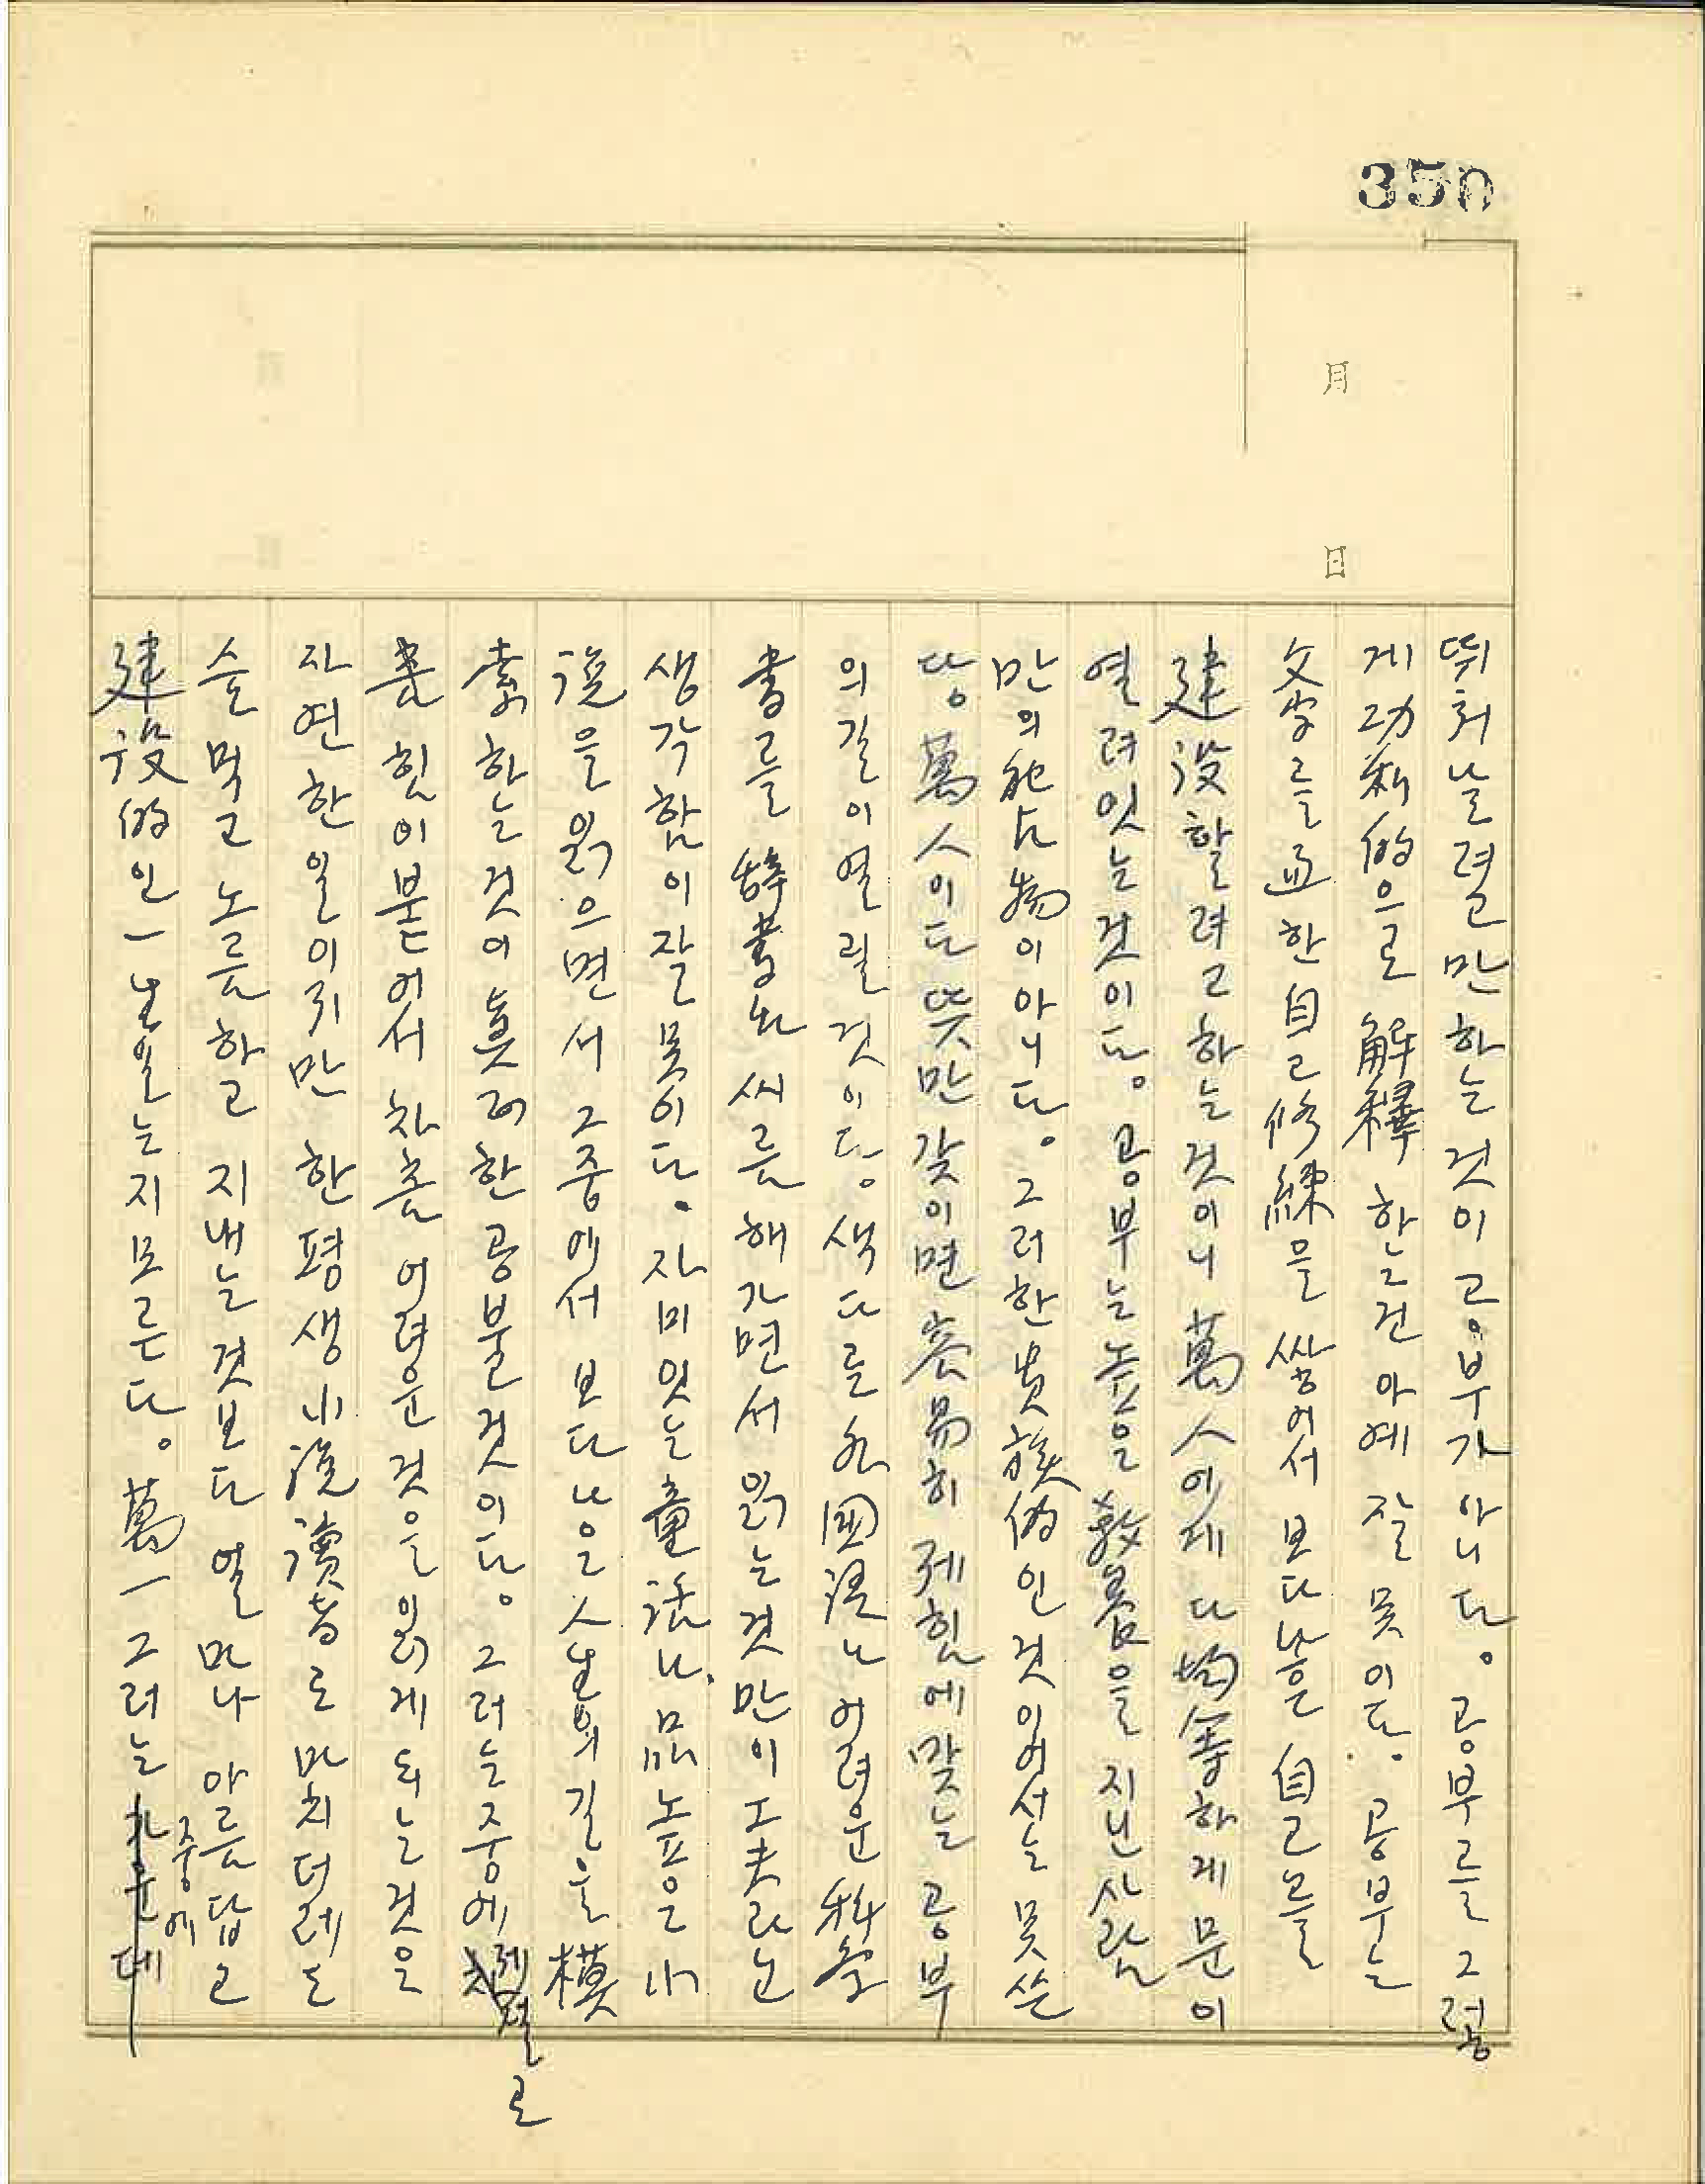 350
月
日
뛰처날려고만 하는 것이 공부가 아니다. 공부를 그렇
게 功利的으로 解釋 하는건 아예 잘 못이다. 공부는
文字를 通한 自己修練을 쌓어서 보다 나은 自己를
建設할려고 하는 것이니 萬人에게 다 均等하게 문이
열려있는 것이다. 공부는 높은 敎養을 지닌사람
만의 이 아니다. 그러한 貴族的인 것이어서는 못쓴
다. 萬人이 다 뜻만 갖이면 容易히 제힘에 맞는 공부
의 길이 열릴 것이다. 색다를 外國語나 어려운 科學
書를 辭書와 씨름 해가면서 읽는 것만이 工夫라는
생각함이 잘못이다. 자미있는 童話나, 品높은 小
說을 읽으면서 그중에서 보다 나은 人生의 길을 摸
索하는 것이 훌륭한 공불 것이다. 그러는 중에 제절로
혼 힘이 붙어서 차츰 어려운 것을 읽게 되는 것은
자연한 일이지만 한평생 小說讀者로 마치더래도
술 먹고 노름하고 지내는 것보다 얼마나 아름답고
建設的인 一生일는지 모른다. 萬一 그러는 중에